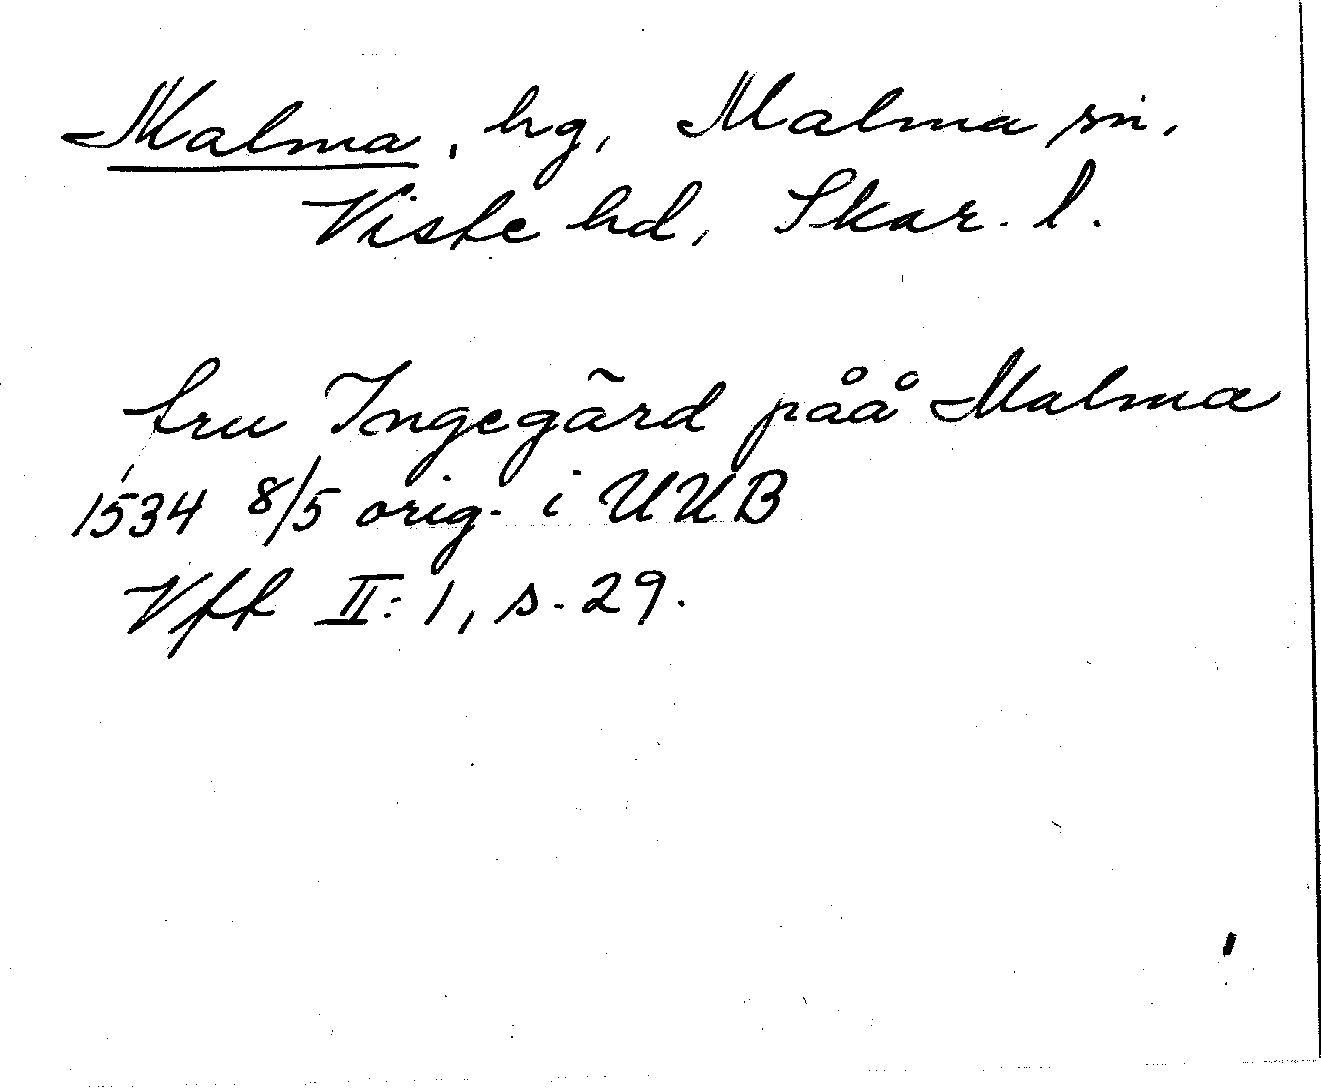 Malma, hg, Malma sn,
Viste hd, Skar. l.
fru Ingegãrd påå Malma
1534 8/5 orig. i UUB
Vff II:1, s. 29.